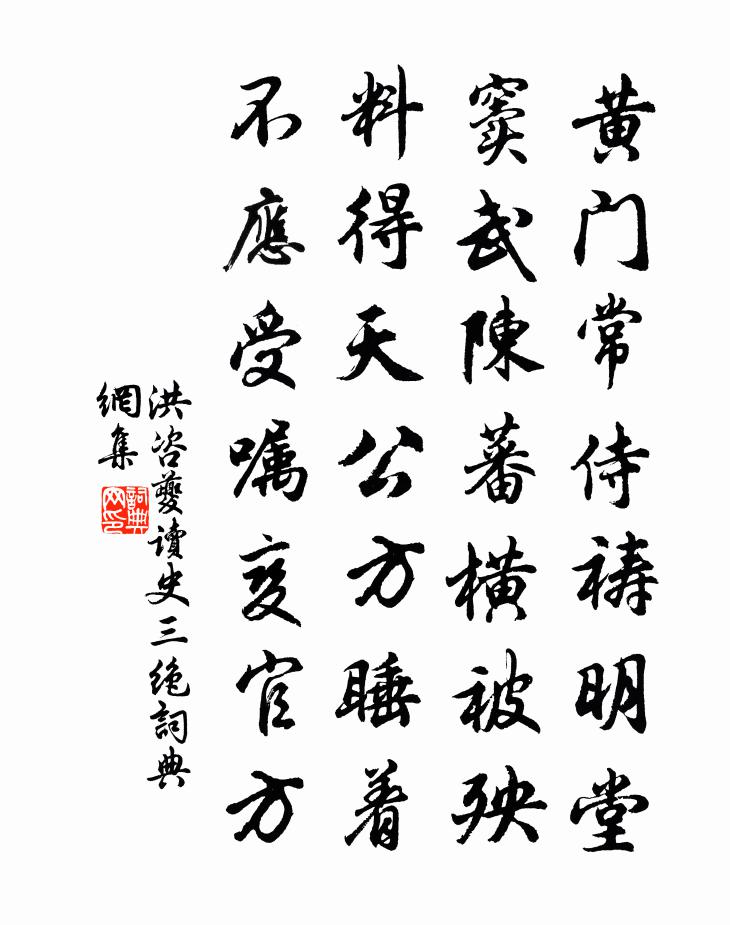 黄门常侍祷明堂
窦武陳蕃横被殃
料得天公方睡着
不應受嘱变官方
洪咨夔读史三绝詞典
網集
詞典网印